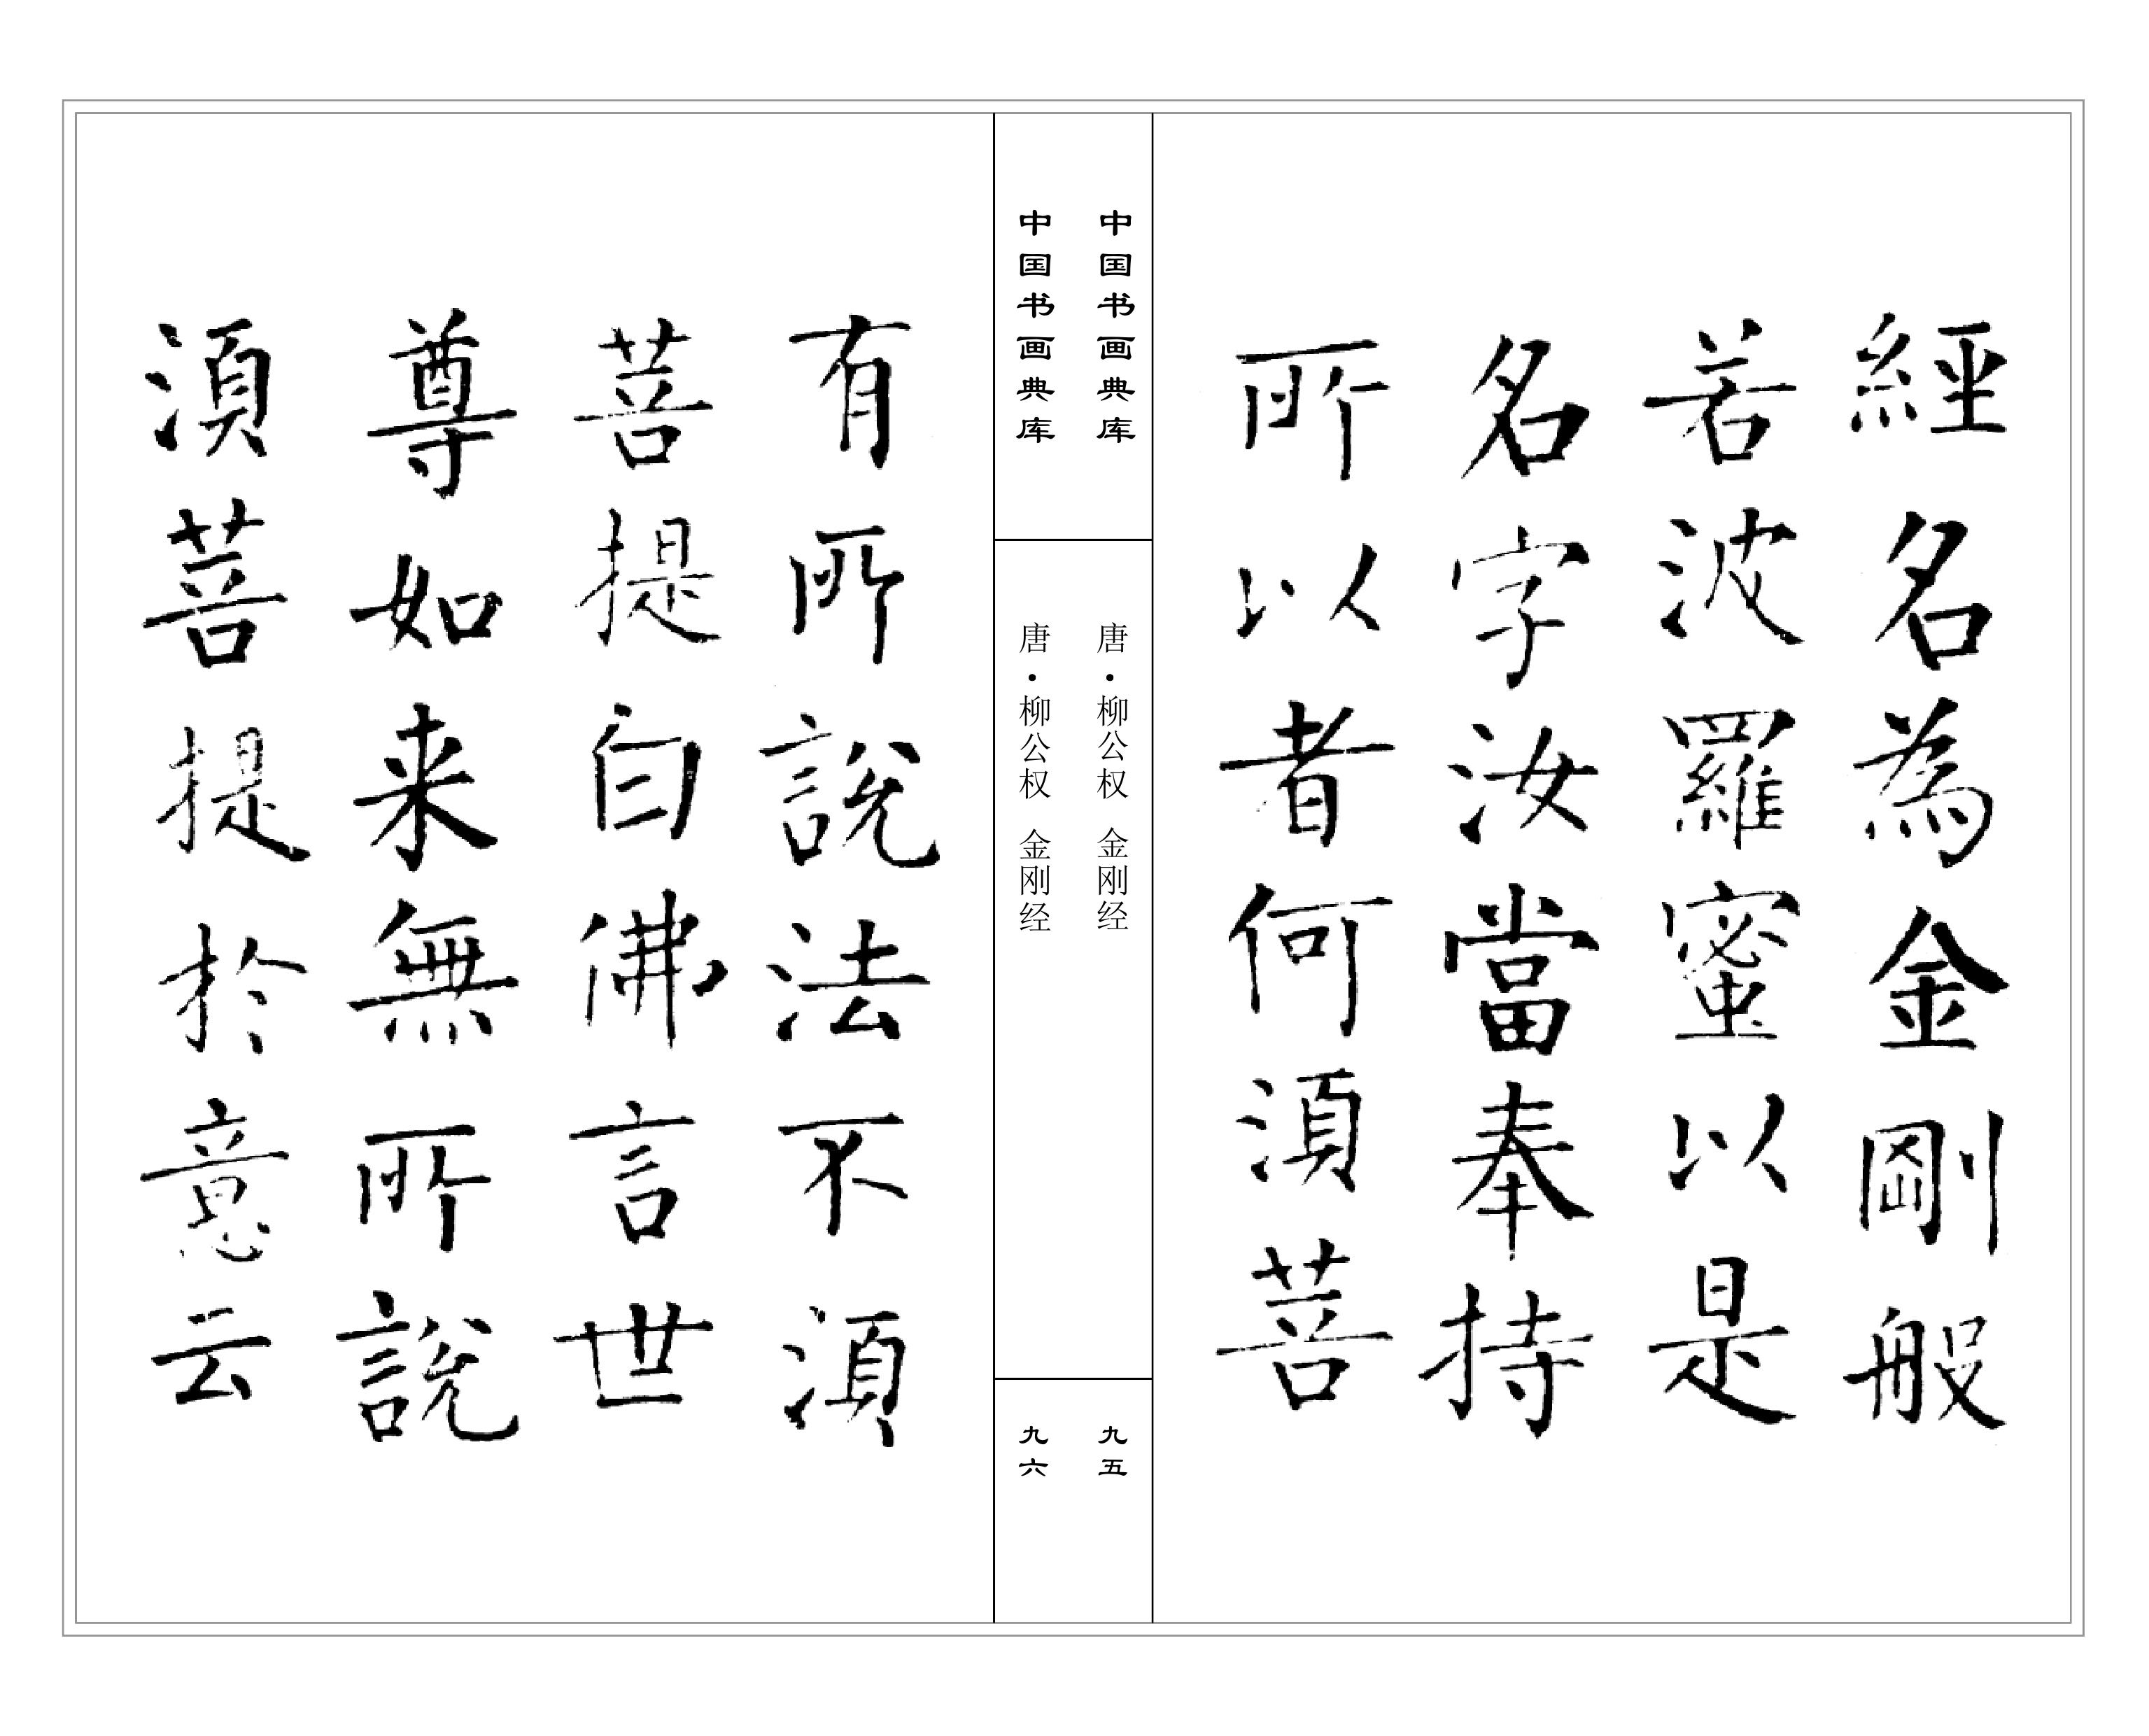 經名為金剛般
若波羅蜜以是
名字汝當奉持
所以者何須菩
中国书画典库
唐·柳公权 金刚经
九五
中国书画典库
唐·柳公权 金刚经
九六
有所說法不須
菩提白佛言世
尊如来無所說
須菩提於意云